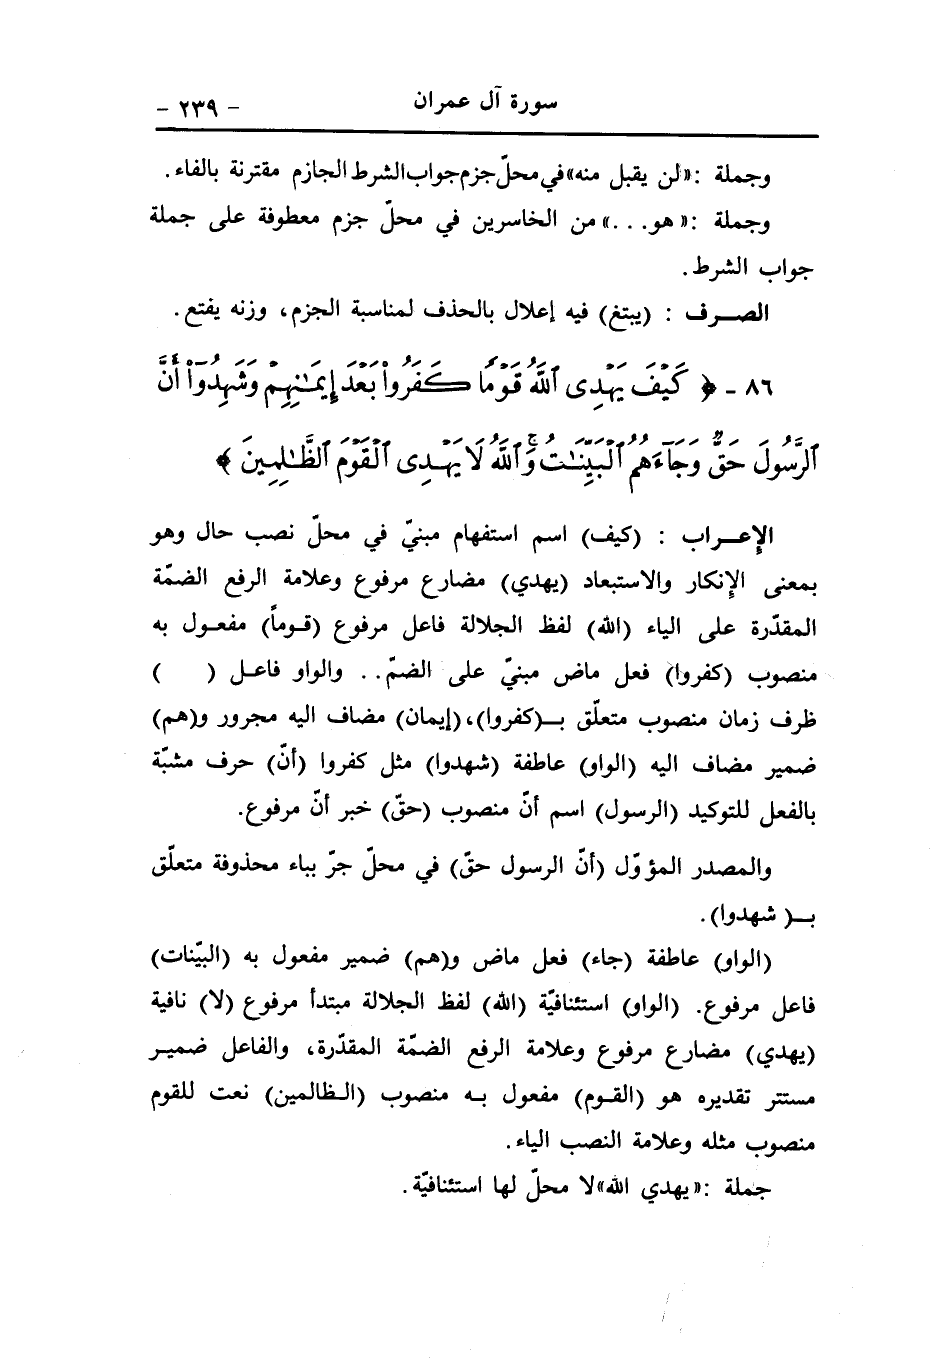 سورة آل عمران
- ٢٣٩ -
وجملة :«لن يقبل منه»في محلّ جزم جواب الشرط الجازم مقترنة بالفاء.
وجملة :« هو. . .» من الخاسرين في محلّ جزم معطوفة على جملة
جواب الشرط.
الصرف : (يبتغ) فيه إعلال بالحذف لمناسبة الجزم، وزنه يفتع.
٨٦ - ﴿ كَيْفَ يَهْدِى ٱللَّهُ قَوْمًا كَفَرُوا۟ بَعْدَ إِيمَـٰنِهِمْ وَشَهِدُوٓا۟ أَنَّ
ٱلرَّسُولَ حَقٌّ وَجَآءَهُمُ ٱلْبَيِّنَـٰتُ ۚ وَٱللَّهُ لَا يَهْدِى ٱلْقَوْمَ ٱلظَّـٰلِمِينَ ﴾
الإعراب : (كيف) اسم استفهام مبنيّ في محلّ نصب حال وهو
بمعنى الإنكار والاستبعاد (يهدي) مضارع مرفوع وعلامة الرفع الضمّة
المقدّرة على الياء (الله) لفظ الجلالة فاعل مرفوع (قوماً) مفعول به
منصوب (كفروا) فعل ماض مبنيّ على الضمّ. . والواو فاعل ( )
ظرف زمان منصوب متعلّق بـ(كفروا)، (إيمان) مضاف اليه مجرور و(هم)
ضمير مضاف اليه (الواو) عاطفة (شهدوا) مثل كفروا (أنّ) حرف مشبّة
بالفعل للتوكيد (الرسول) اسم أنّ منصوب (حقّ) خبر أنّ مرفوع.
والمصدر المؤوّل (أنّ الرسول حقّ) في محلّ جرّ بباء محذوفة متعلّق
بـ( شهدوا).
(الواو) عاطفة (جاء) فعل ماض و(هم) ضمير مفعول به (البيّنات)
فاعل مرفوع. (الواو) استئنافيّة (الله) لفظ الجلالة مبتدأ مرفوع (لا) نافية
(يهدي) مضارع مرفوع وعلامة الرفع الضمّة المقدّرة، والفاعل ضمير
مستتر تقديره هو (القوم) مفعول به منصوب (الظالمين) نعت للقوم
منصوب مثله وعلامة النصب الياء.
جملة :«يهدي الله»لا محلّ لها استئنافيّة.